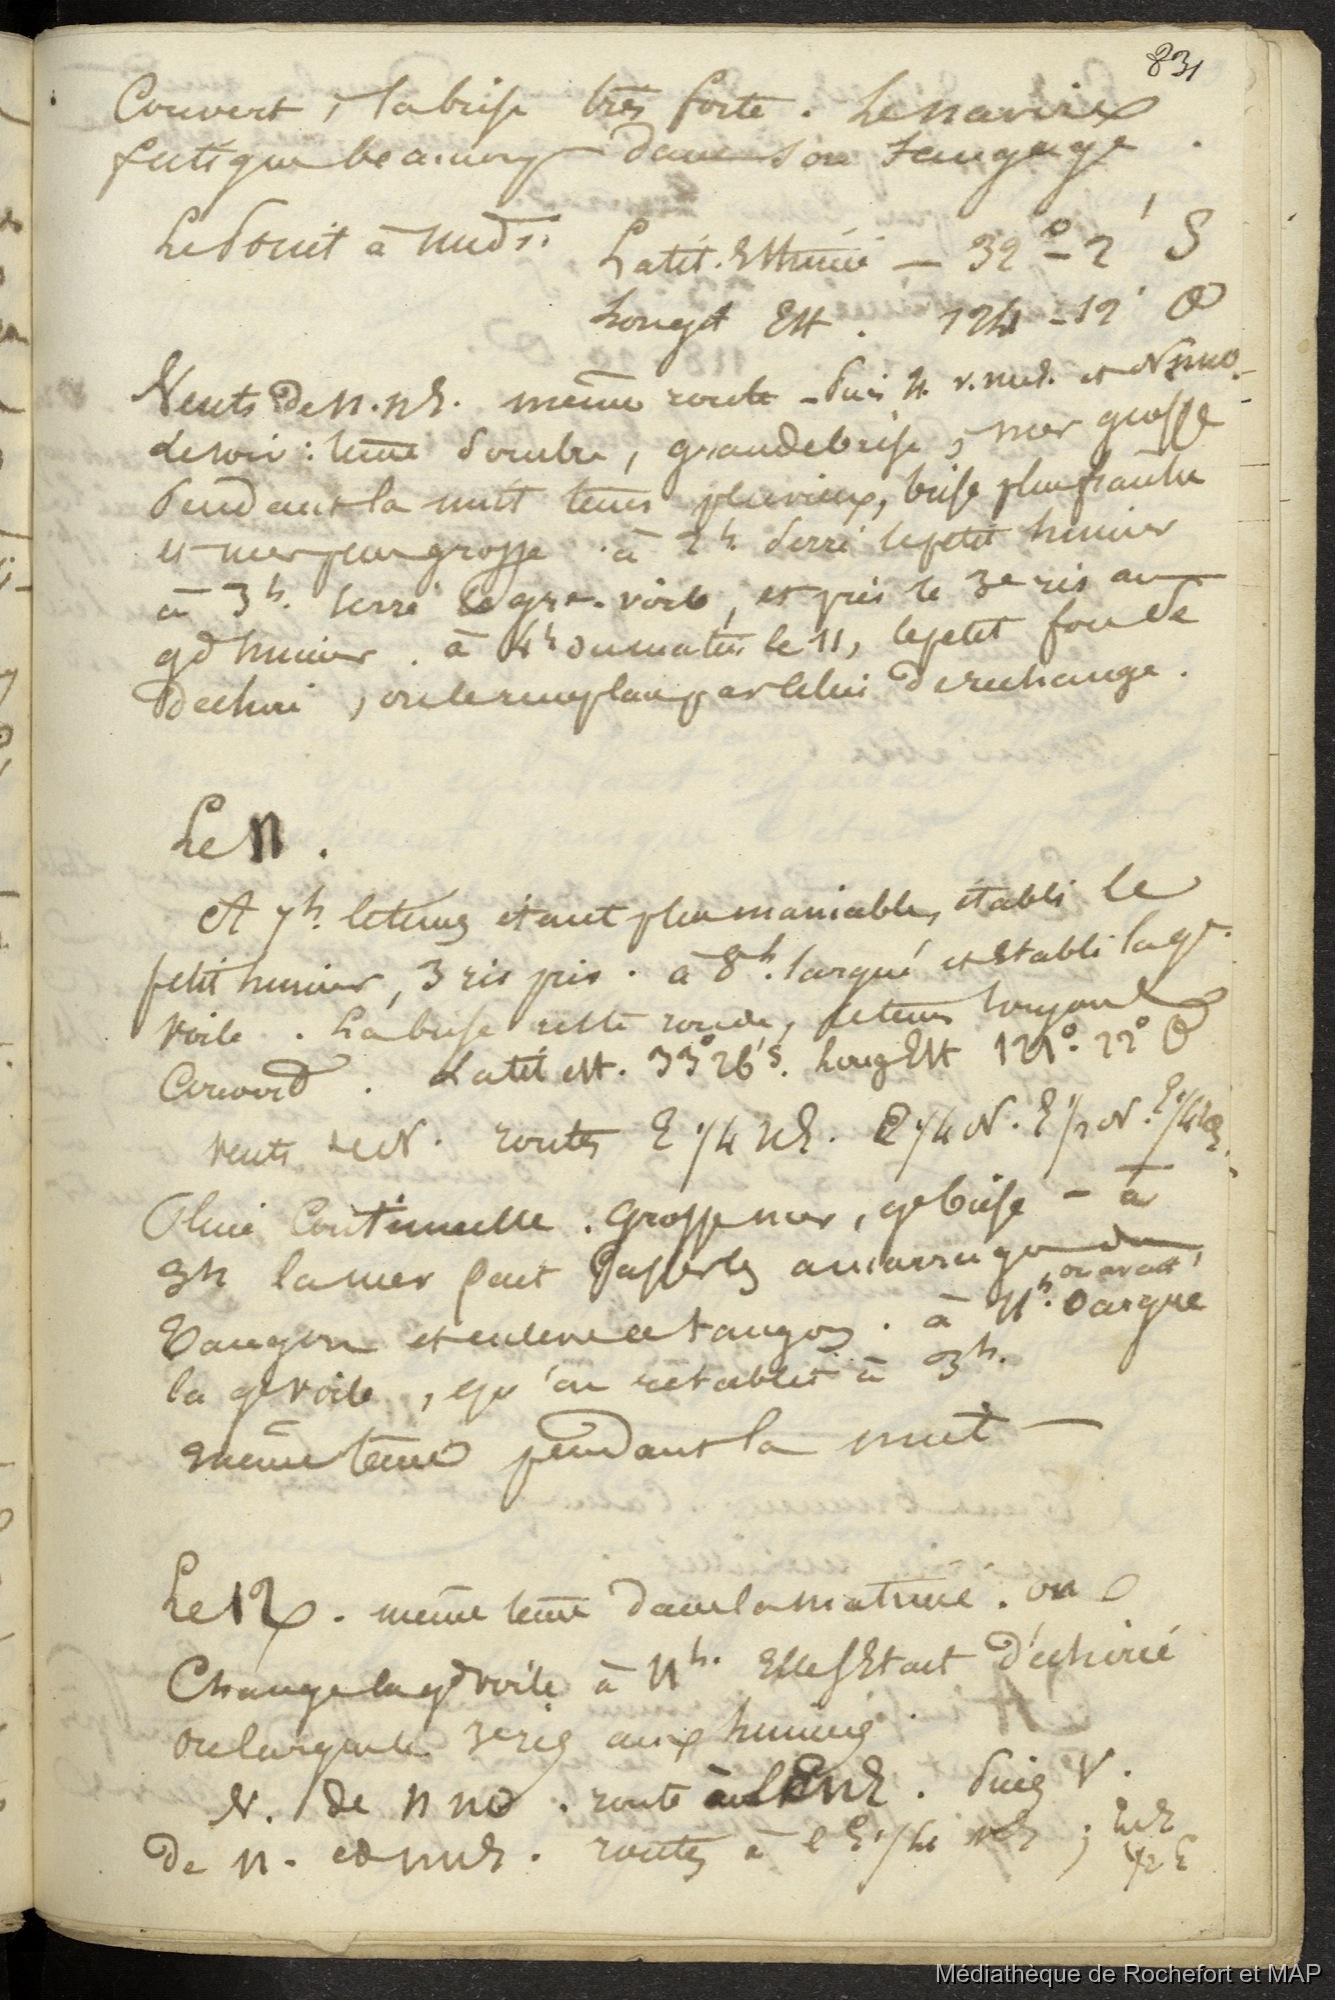 831
Couvert, la brise très forte. Le navire
fatigue beaucoup dans son tangage.
Le point à midi. Latit. Estimée — 32° - 2' S
Longt Est. 124 - 12' O
Vents de N.NE. même route - puis N. v. NNE. et NNNO.
le soir : tems sombre, grande brise, mer grosse
pendant la nuit tems pluvieux, brise plus fraiche
et mer plus grosse. à 2h. serré le petit hunier
à 3h. serré la gre. voile, et pris le 3e ris au
gd hunier. à 4h du matin le 11, le petit foc de
déchiré, on le remplace par celui de rechange.
Le 11.
A 7h. le tems étant plus maniable, établi le
petit hunier, 3 ris pris. à 8h. largué et établi la gr.
voile. La brise reste ronde, le tems toujours
Couvert. Latit est. 33° 26' S. Long Est 121°. 22° O
Vents de N. routes E 1/4 NE. E 1/4 N. E 1/2 N. E 1/4
Pluie Continuelle. Grosse mer, ge brise - à
3h la mer fait casser les amarrages du
Tangon et enleve le tangon. à 11h. on avait cargué
la ge voile, qu'on rétablit à 3h.
même tems pendant la nuit —
Le 12. même tems dans la matinée. on
Change la gd voile à 11h. Elle s'était déchiré
on largue le 3e ris aux huniers.
V. de N NO. route à l'ENE. puis V.
de N. et NNE. routes à l'E 1/4 NE, ENE
1/2 E
Médiathèque de Rochefort et MAP